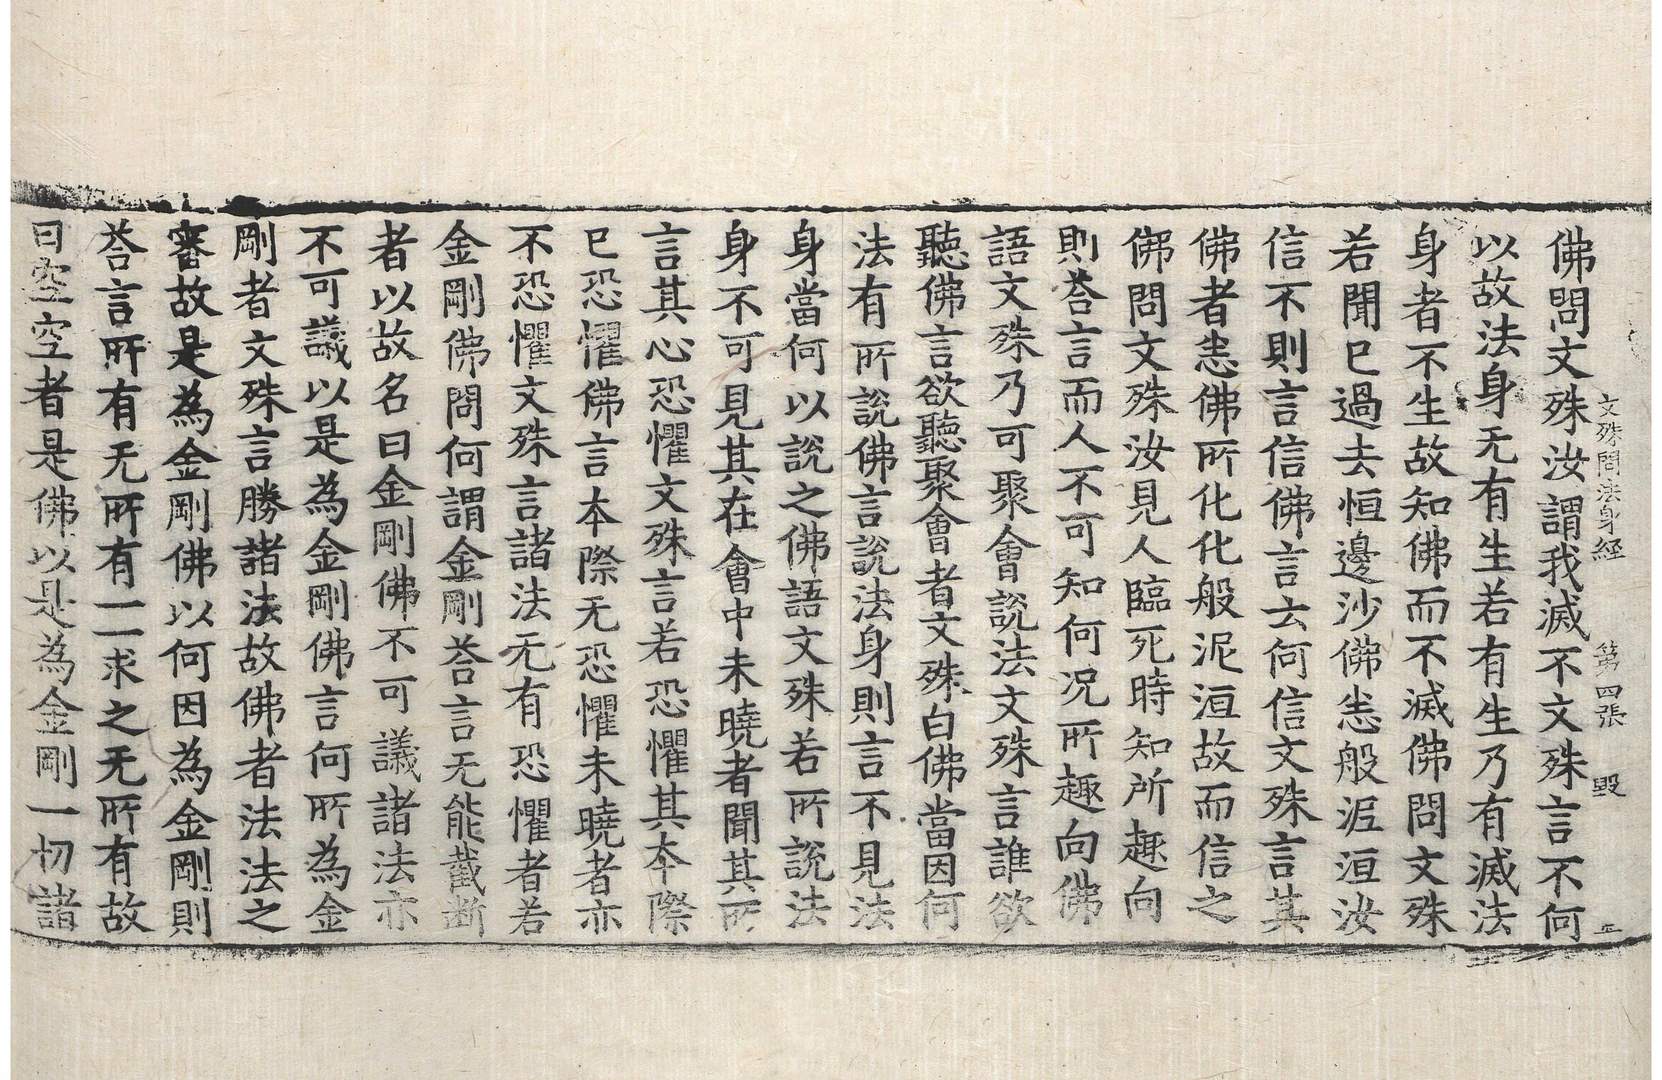 文殊問法身經　第四張　毀
佛問文殊汝謂我滅不文殊言不何
以故法身无有生若有生乃有滅法
身者不生故知佛而不滅佛問文殊
若聞已過去恒邊沙佛悉般泥洹汝
信不則言信佛言云何信文殊言其
佛者悉佛所化化般泥洹故而信之
佛問文殊汝見人臨死時知所趣向
則荅言而人不可知何况所趣向佛
語文殊乃可聚會說法文殊言誰欲
聽佛言欲聽聚會者文殊白佛當因何
法有所說佛言說法身則言不見法
身當何以說之佛語文殊若所說法
身不可見其在會中未曉者聞其所
言其心恐懼文殊言若恐懼其本際
已恐懼佛言本際无恐懼未曉者亦
不恐懼文殊言諸法无有恐懼者若
金剛佛問何謂金剛荅言无能截断
者以故名曰金剛佛不可議諸法亦
不可議以是為金剛佛言何所為金
剛者文殊言勝諸法故佛者法法之
審故是為金剛佛以何因為金剛則
荅言所有无所有一一求之无所有故
曰空空者是佛以是為金剛一切諸